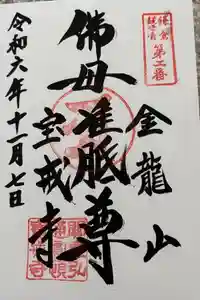 第二番
金龍山
佛母准胝尊
宝戒寺
令和六年十一月七日